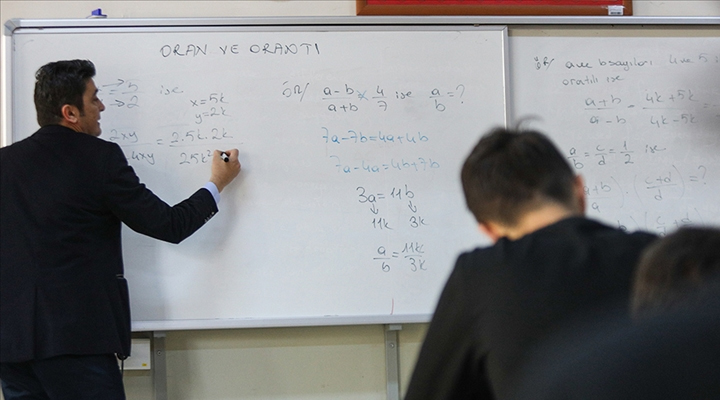 ORAN VE ORANTI
5
2
ise
x=5k
y=2k
2xy
4xy
=
2.5k.2k
25k²
ÖR/ a-b/a+b = 4/7 ise a/b = ?
7a-7b=4a+4b
7a-4a=4b+7b
3a=11b
11k 3k
a/b = 11k/3k
ÖR/ a ve b sayıları 4 ve 5
oratılı ise
a+b/a-b = 4k+5k/4k-5k =
a/b = c/d = 1/2 ise
(c+d/d) = ?